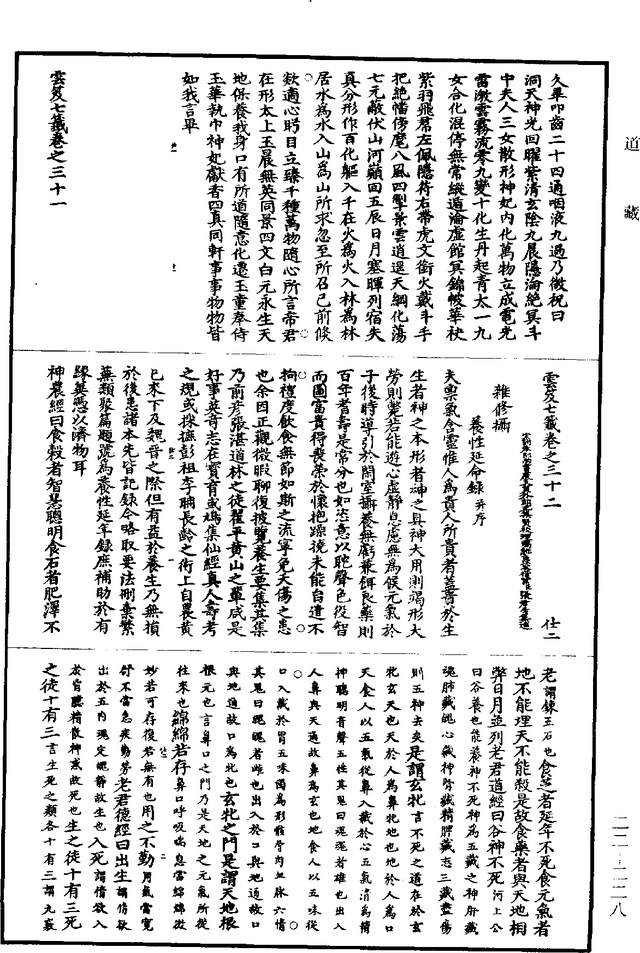 道藏
久畢叩齒二十四通咽液九過乃微祝曰
洞天神光回曜紫清玄陰九晨隱淪絕冥斗
中夫人三女散形神妃內化萬物立成電光
雷激雲霧流零九變十化生丹起青太一九
女合化混停無常縱遁淪虛館冥錦帔華袂
紫羽飛帬左佩隱符右帶虎文銜火戴斗手
把絕幡傍麾八風四掣景雲逍遥天綱化蕩
七元蔽伏山河巔回五辰日月塞暉列宿失
真分形作百化軀入千在火為火入林為林
居水為水入山為山所求忽至所召已前倏
欻適心眄目立臻千種萬物隨心所言帝君
在形太上玉晨無英同景四文白元永生天
地保養我身口有所道隨意化遷玉童奉侍
玉華執巾神妃獻香四真同軒事事物物皆
如我言畢
雲笈七籤卷之三十一
雲笈七籤卷之三十二 仕二
雜修攝
養性延命錄并序
夫稟氣含靈惟人為貴人所貴者蓋貴於生
生者神之本形者神之具神大用則竭形大
勞則斃若能遊心虛靜息慮無為候元氣於
子後時導引於閑室攝養無虧兼餌良藥則
百年耆壽是常分也如恣意以耽聲色役智
而圖富貴得喪縈於懷抱躁撓未能自遣不
拘禮度飲食無節如斯之流寧免夭傷之患
也余因止觀微暇聊復披覽養生要集其集
乃前彥張湛道林之徒翟平黃山之輩咸是
好事英奇志在寶育或鳩集仙經真人壽考
之規或採摭彭祖李聃長齡之術上自農黃
已來下及魏晉之際但有益於養生乃無損
於後患諸本先皆記錄今略取要法刪棄繁
蕪類聚篇題號為養性延年錄庶補助於有
緣冀憑以濟物耳
神農經曰食穀者智慧聰明食石者肥澤不
老謂鍊五石也食芝者延年不死食元氣者
地不能埋天不能殺是故食藥者與天地相
弊日月並列老君道經曰谷神不死河上公
曰谷養也能養神不死神為五藏之神肝藏
魂肺藏魄心藏神腎藏精脾藏志五藏盡傷
則五神去矣是謂玄牝言不死之道在於玄
牝玄天也天於人為鼻牝地也地於人為口
天食人以五氣從鼻入藏於心五氣清為精
神聰明音聲五性其鬼曰魂魂者雄也出入
人鼻與天通故鼻為玄也地食人以五味從
口入藏於胃五味濁為形骸骨肉血脉六情
其鬼曰魄魄者雌也出入於口與地通故口
與地通故口為牝也玄牝之門是謂天地根
根元也言鼻口之門乃是天地之元氣所從
往來也綿綿若存鼻口呼吸喘息當綿綿微
妙若可存復若無有也用之不勤用氣當寬
舒不當急疾勤勞老君德經曰出生謂情欲
出於五內魂定魄靜故生也入死謂情欲入
於胷臆精散神惑故死也生之徒十有三死
之徒十有三言生死之類各十有三謂九竅
二二—二二八